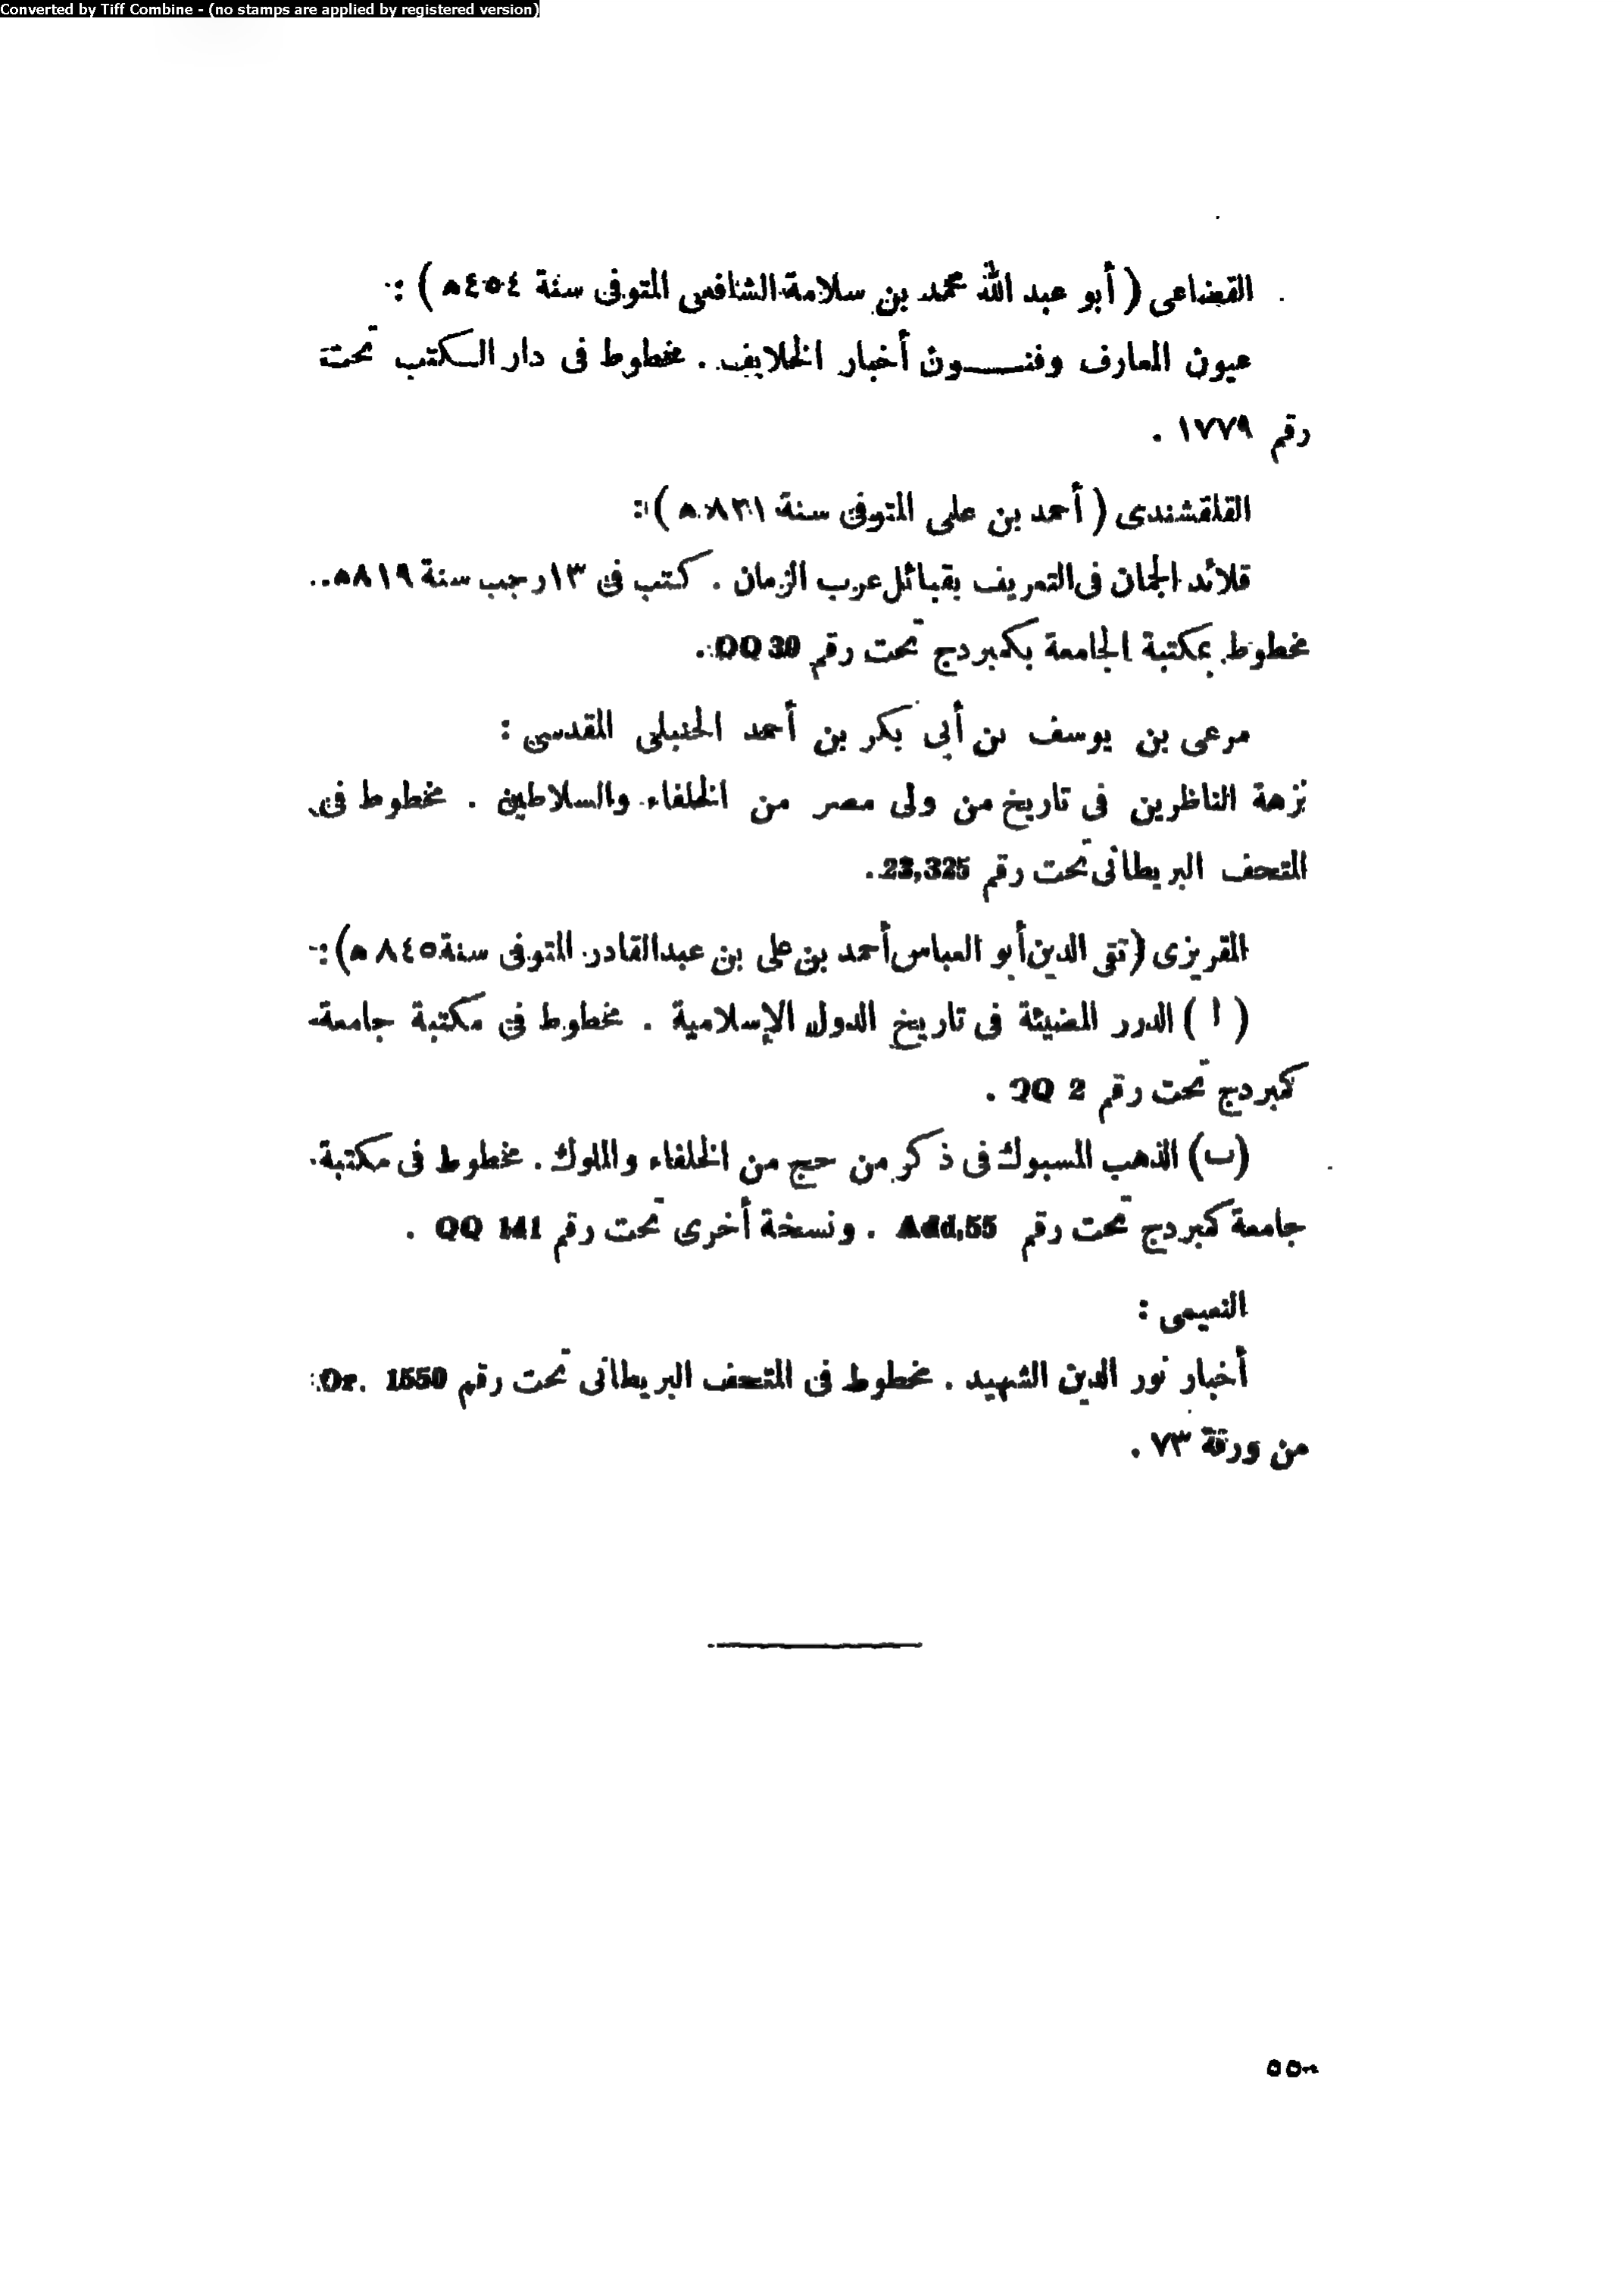 Converted by Tiff Combine - (no stamps are applied by registered version)
القضاعى ( أبو عبد الله محمد بن سلامة الشافعى المتوفى سنة ٤٥٤ هـ ) :
عيون المعارف وفنـــون أخبار الخلايف . مخطوط فى دار الكتب تحت
رقم ١٧٧٩ .
القلقشندى ( أحمد بن على المتوفى سنة ٨٢١ هـ ) :
قلائد الجمان فى التعريف بقبائل عرب الزمان . كتب فى ١٣ رجب سنة ٨١٩ هـ .
مخطوط بمكتبة الجامعة بكمبردج تحت رقم QQ 30 .
مرعى بن يوسف بن أبى بكر بن أحمد الحنبلى المقدسى :
نزهة الناظرين فى تاريخ من ولى مصر من الخلفاء والسلاطين . مخطوط فى
المتحف البريطانى تحت رقم 23,325 .
المقريزى ( تقى الدين أبو العباس أحمد بن على بن عبد القادر المتوفى سنة ٨٤٥ هـ ) :
( ا ) الدرر المضيئة فى تاريخ الدول الإسلامية . مخطوط فى مكتبة جامعة
كمبردج تحت رقم QQ 2 .
(ب) الذهب المسبوك فى ذكر من حج من الخلفاء والملوك . مخطوط فى مكتبة
جامعة كمبردج تحت رقم Add,55 . ونسخة أخرى تحت رقم QQ 141 .
النعيمى :
أخبار نور الدين الشهيد . مخطوط فى المتحف البريطانى تحت رقم Or. 1550
من ورقة ٧٣ .